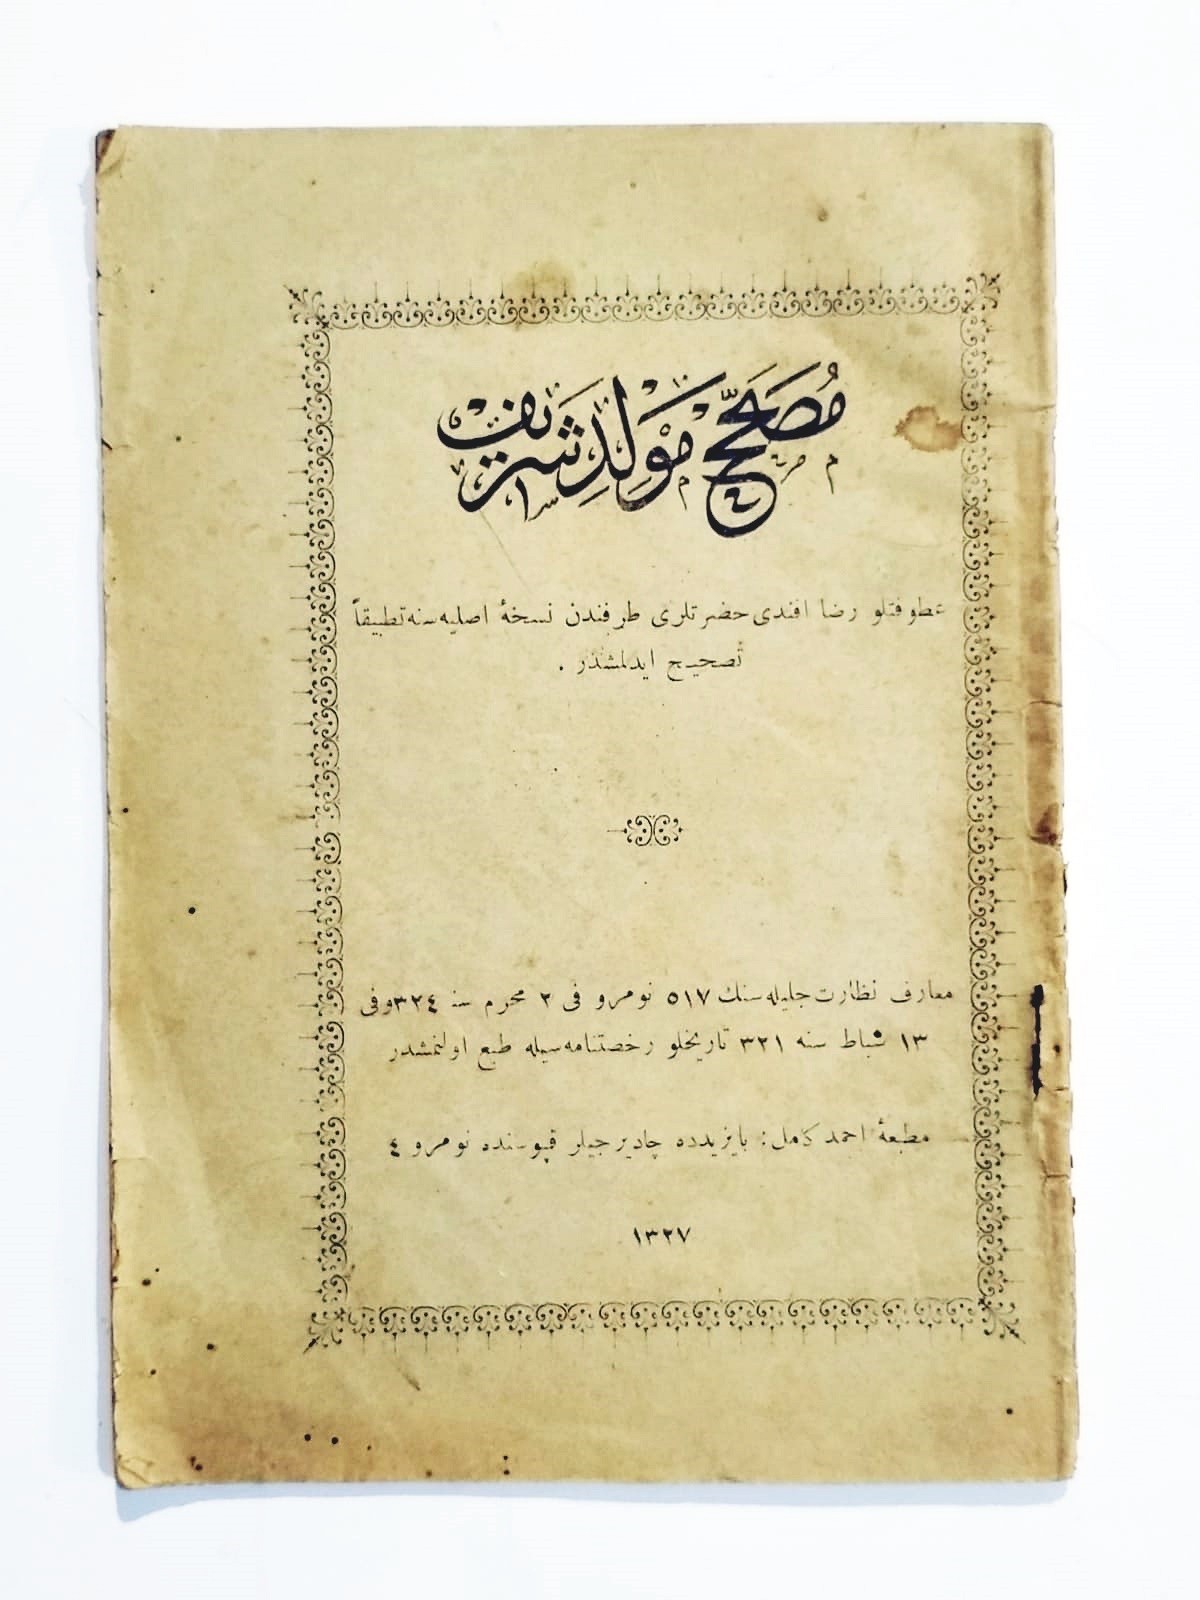 مُصَحَّح مَوْلِدِ شَرِيف
عطوفتلو رضا افندی حضرتلری طرفندن نسخهٔ اصلیه‌سنه تطبیقاً
تصحیح ایدلمشدر .
معارف نظارت جلیله‌سنك ٥١٧ نومرو فی ٢ محرم سنه ٣٢٤ وفی
١٣ شباط سنه ٣٢١ تاریخلو رخصتنامه‌سیله طبع اولنمشدر
مطبعهٔ احمد کامل : بایزیدده چادیرجیلر قپوسنده نومرو ٤
١٣٢٧